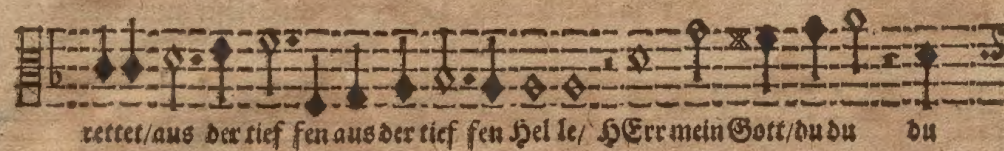 rettet/aus der tief fen aus der tief fen Hel le/ HErr mein Gott/du du du